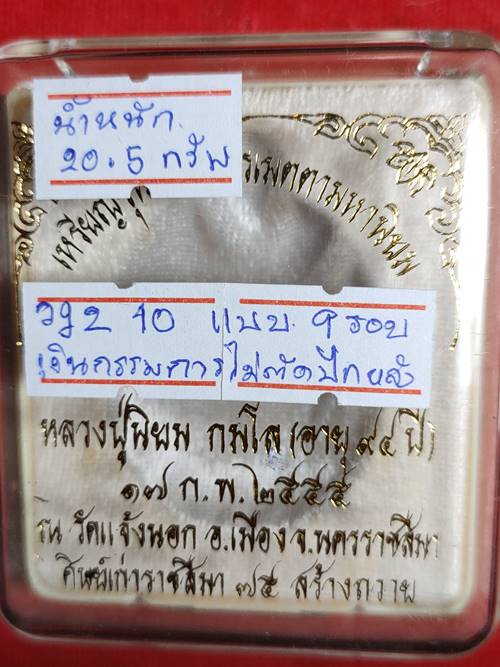 น้ำหนัก.
20.5 กรัม
เหรียญ
เมตตามหานิยม
10 แบบ. 9 รอบ
เงินกรรมการไม่ตัดปีกหลัง
หลวงปู่นิยม กมโล (อายุ ๙๔ ปี)
๑๗ ก.พ. ๒๕๕๕
ณ วัดแจ้งนอก อ.เมือง จ.นครราชสีมา
ศิษย์เก่าราชสีมา ๗๕ สร้างถวาย